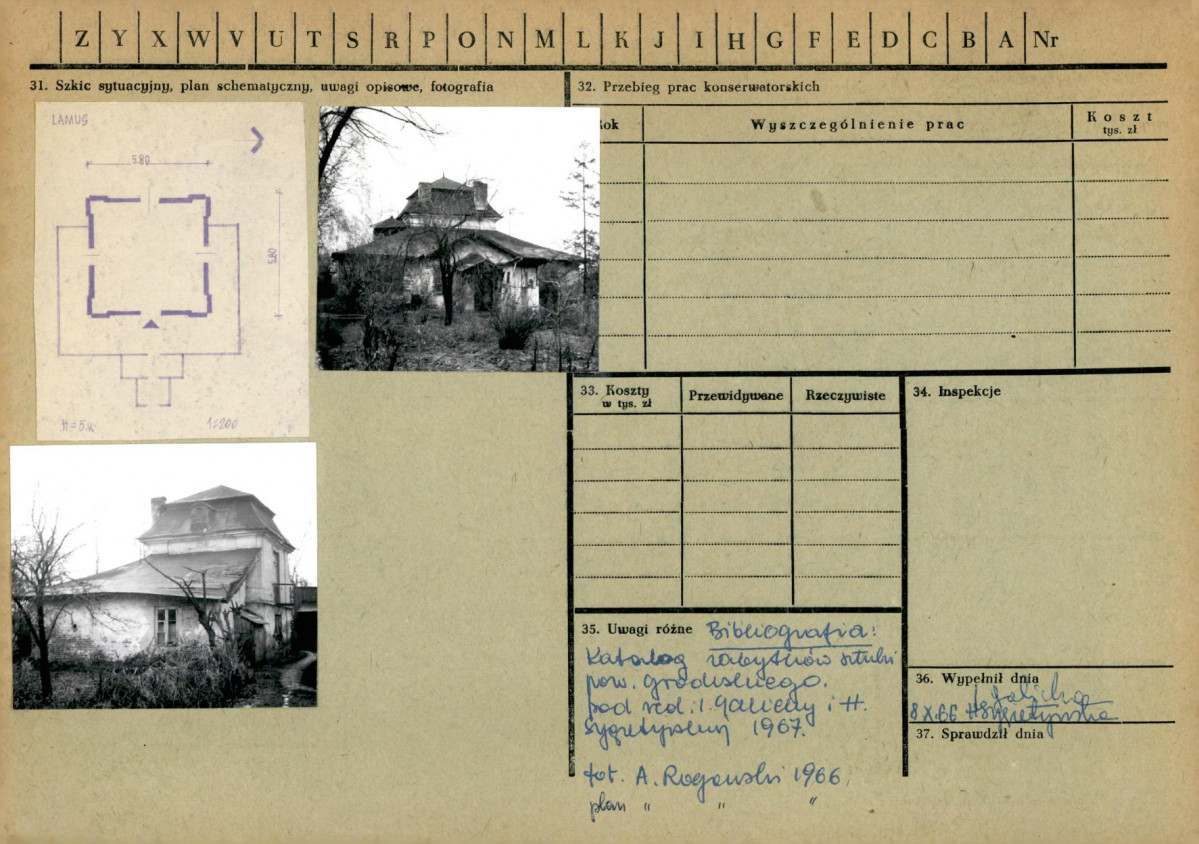 Z Y X W V U T S R P O N M L K J I H G F E D C B A Nr
31. Szkic sytuacyjny, plan schematyczny, uwagi opisowe, fotografia
LAMUS
5.80
5.80
H=5m
1:200
32. Przebieg prac konserwatorskich
ok
Wyszczególnienie prac
Koszt
tys. zł
33. Koszty
w tys. zł
Przewidywane
Rzeczywiste
34. Inspekcje
35. Uwagi różne Bibliografia:
Katalog zabytków sztuki
pow. grodziskiego.
pod red. I. Galickiej i H.
Sygietyńskiej 1967.
fot. A. Rogowski 1966
plan " " "
36. Wypełnił dnia
I Galicka
8 X.66 HSygietyńska
37. Sprawdził dnia